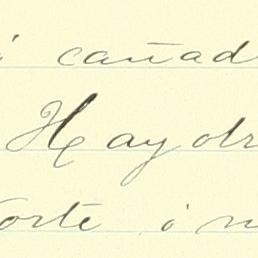 i cañad
Hay otr
orte i n